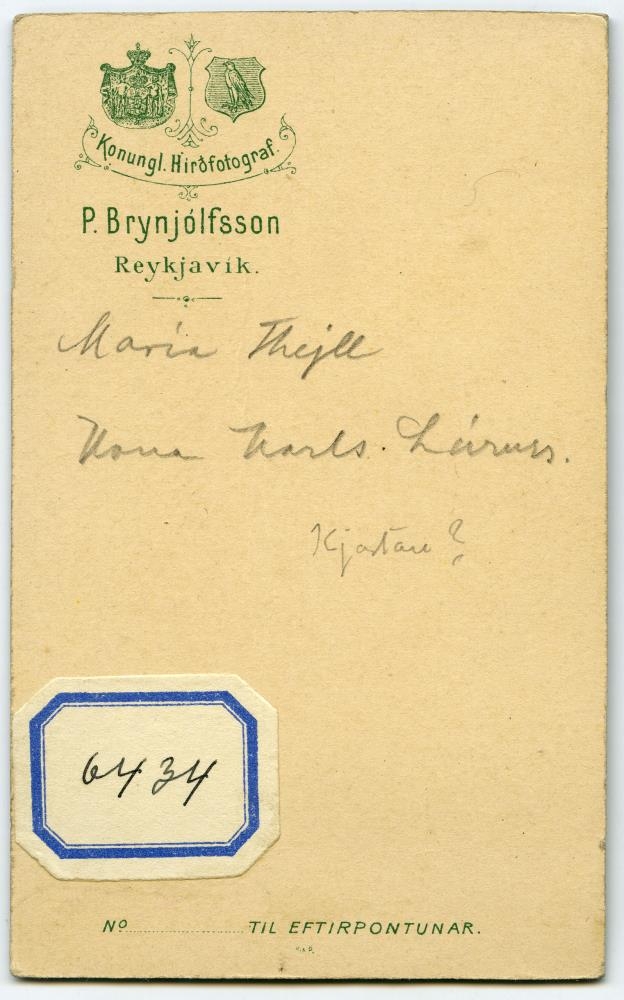 Konungl. Hirðfotograf.
P. Brynjólfsson
Reykjavík.
María Thejll
Kona Karls. Lárus.
Kjartan?
6434
No............TIL EFTIRPONTUNAR.